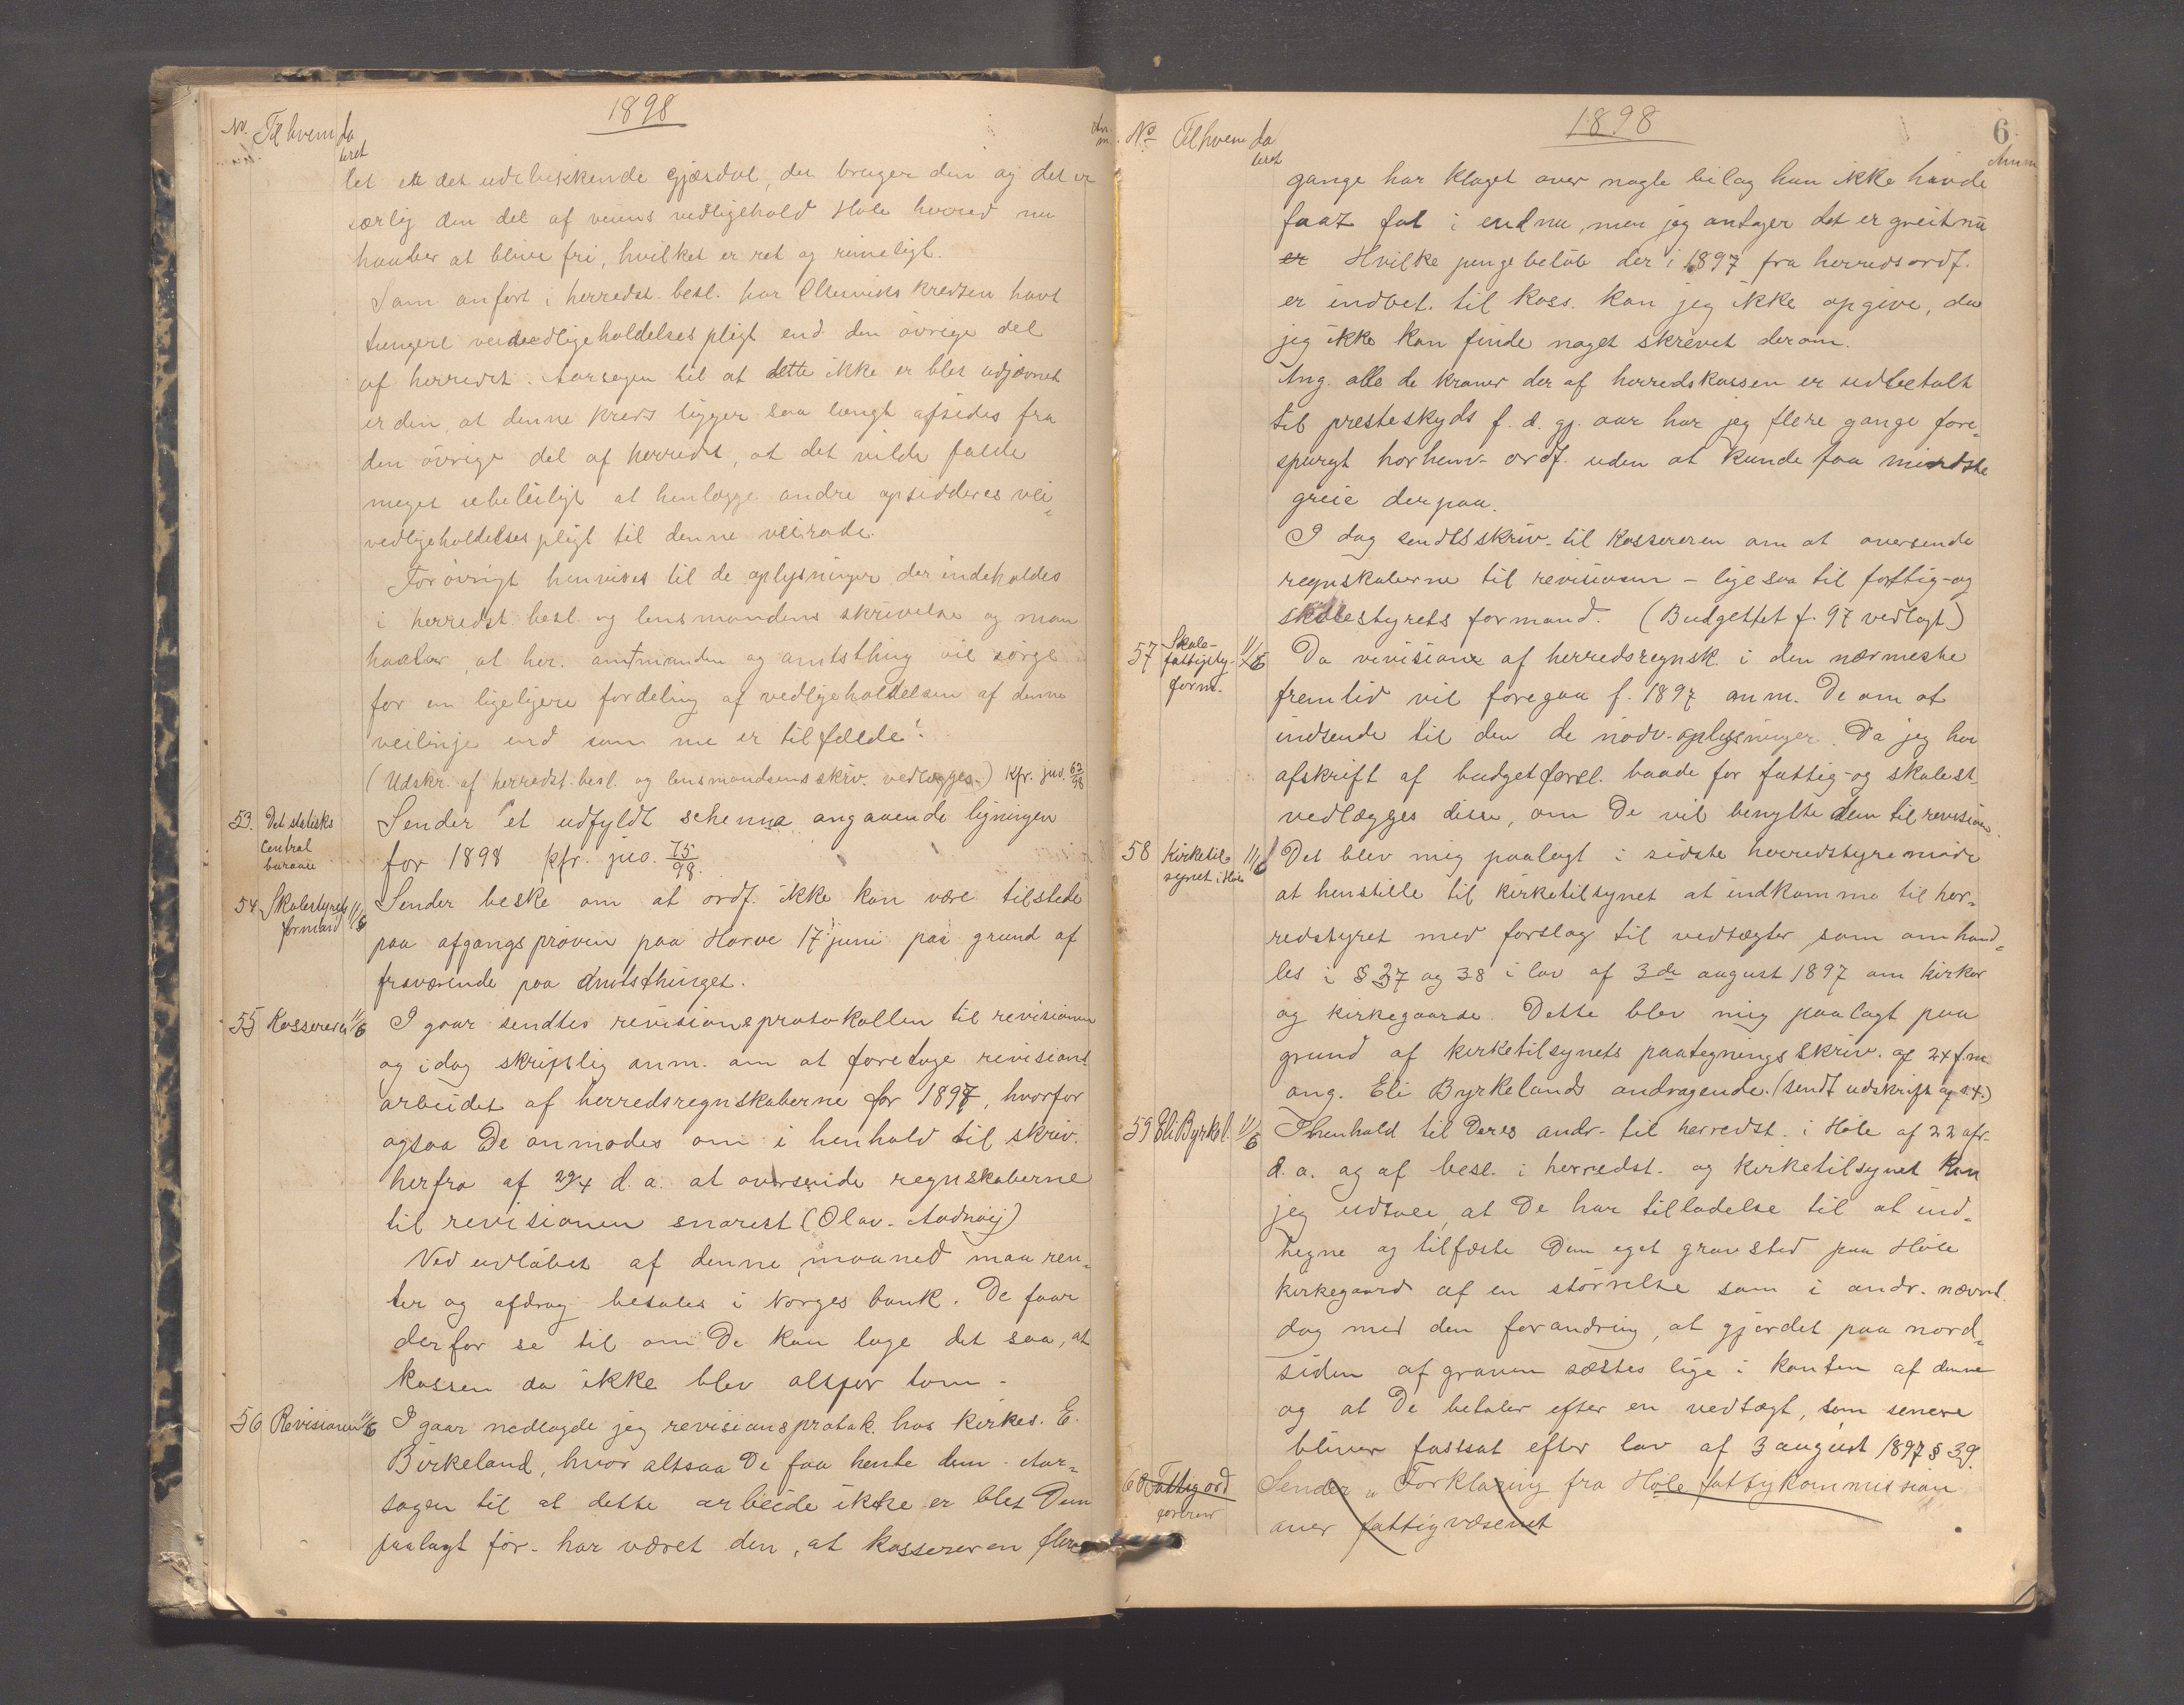 1898
No. Til hvem da
teret
let er det udelukkende Gjæsdal, der bruger den og det er
særlig den del af veiens vedligehold Høle herred nu
haaber at blive fri, hvilket er ret og rimeligt.
Som anført i herredst. besl. har Oltesviks kredsen havt
tungere veivedligeholdelsespligt end den øvrige del
af herredet. Aarsagen til at dette ikke er blet udjævnet
er den, at denne kreds ligger saa langt afsides fra
den øvrige del af herredet, at det vilde falde
meget ubeleiligt at henlægge andre opsidderes vei-
vedligeholdelsespligt til denne veirode.
Forøvrigt henvises til de oplysninger der indeholdes
i herredst. besl. og lensmandens skrivelse og man
haaber, at hr. amtmanden og amtsthing vil sørge
for en ligeligere fordeling af vedligeholdelsen af denne
veilinje end som nu er tilfælde!
(Udskr. af herredst. besl. og lensmandens skriv. vedlægges.) Kfr. jno. 62/98
53. Det statistiske Sender et udfyldt schema angaaende ligningen
Central
bureau for 1898 kfr. jno. 75/98.
54 Skolestyrets 11/6 Sender beske om at ordf. ikke kan være tilstede
formand paa afgangsprøven paa Horve 17 juni paa grund af
fraværende paa Amtsthinget.
55 Kassereren 11/6 I gaar sendtes revisionsprotokollen til revisionen
og idag skriftlig anm. om at foretage revisions
arbeidet af herredsregnskaberne for 1897, hvorfor
ogsaa De anmodes om i henhold til skriv.
herfra af 29/4 d.a. at oversende regnskaberne
til revisionen snarest (Olav Aadnøy)
Ved udløbet af denne maaned maa ren-
ter og afdrag betales i Norges bank. De faar
derfor se til om De kan lage det saa, at
kassen da ikke blev altfor tom.
56 Revisionen 11/6 I gaar nedlagde jeg revisionsprotok. hos kirkes. E.
Birkeland, hvor altsaa De faa hente den. Aar-
sagen til at dette arbeide ikke er blet Dem
paalagt før. har været den, at kassereren flere
1898
6
No Til hvem da Anm
teret
gange har klaget over nogle bilag han ikke havde
faat fat i endnu, men jeg antager det er greit nu
er Hvilke pengebeløb der i 1897 fra herredsordf.
er indbet. til kass. kan jeg ikke opgive, da
jeg ikke kan finde noget skrevet derom.
Ang. alle de kroner der af herredskassen er udbetalt
til presteskyds f. d. gj. aar har jeg flere gange fore-
spurgt horhenv. ordf. uden at kunde faa mindste
greie derpaa.
I dag sendts skriv. til Kassereren om at oversende
regnskaberne til revisionen - ligesaa til fattig- og
skolestyrets formand. (Budgettet f. 97 vedlagt)
57 Skole- 11/6 Da revisionen af herredsregnsk. i den nærmeste
fattigsty-
form. fremtid vil foregaa f. 1897 anm. De om at
indsende til den de nødv. oplysninger. Da jeg har
afskrift af budgetforsl. baade for fattig- og skolest.
vedlægges disse, om De vil benytte dem til revision.
58 Kirketil- 11/6 Det blev mig paalagt i sidste herredstyremøde
synet i Høle at henstille til kirketilsynet at indkomme til her-
redstyret med forslag til vedtægter, som omhand-
les i § 37 og 38 i lov af 3de august 1897 om kirker
og kirkegaarde. Dette blev mig paalagt paa
grund af kirketilsynets paategningsskriv. af 24 f.m.
ang. Eli Byrkelands andragende. (sendt udskrift af s. t.)
59 Eli Byrkel. 11/6 I henhold til Deres andr. til herredst. i Høle af 22 apr.
d. a. og af besl. i herredst. og kirketilsynet kan
jeg udtale, at De har tilladelse til at ind-
hegne og tilfæste Dem eget gravsted paa Høle
kirkegaard af en størrelse som i andr. nævnt.
dog med den forandring, at gjerdet paa nord-
siden af graven sættes lige i kanten af denne
og at De betaler efter en vedtægt, som senere
bliver fastsat efter lov af 3 august 1897 § 39.
60 Fattigord Sender „Forklaring fra Høle fattigkommission
over fattigvæsenet